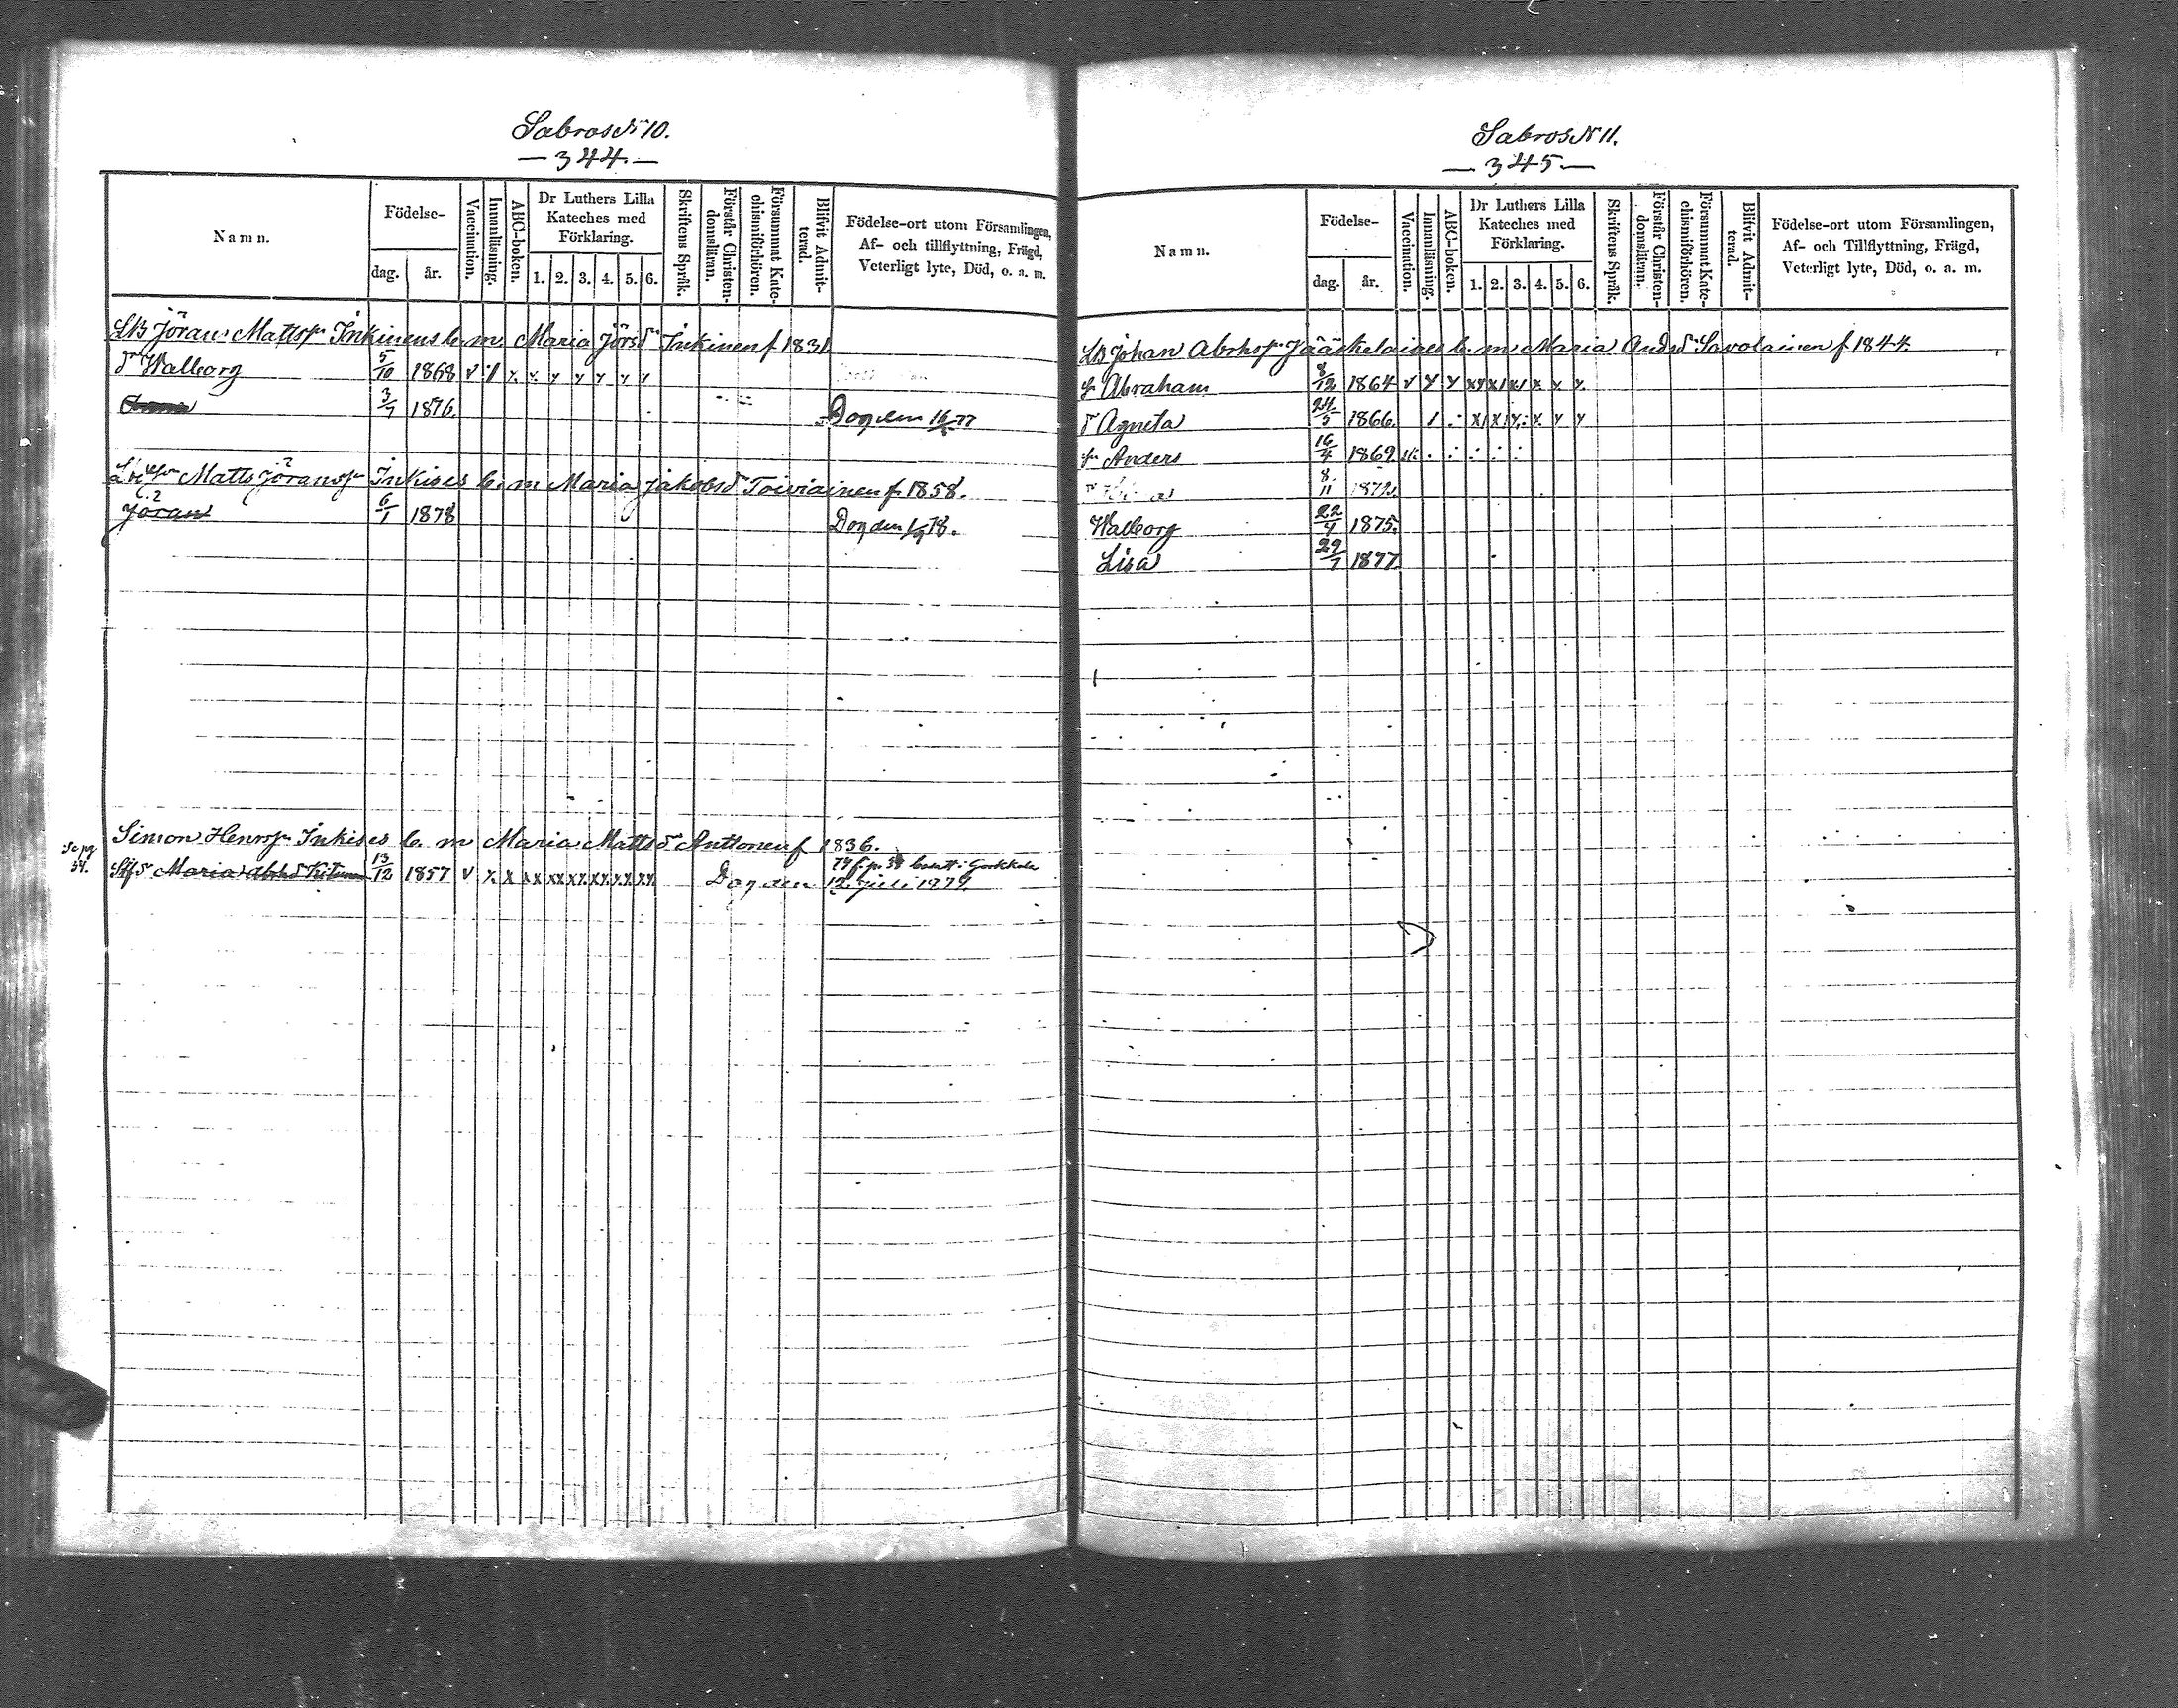 Sabros № 10.
— 344. —
Namn.
Födelse-
dag.
år.
Vaccination.
Innanläsning.
ABC-boken.
Dr Luthers Lilla
Kateches med
Förklaring.
1. 2. 3. 4. 5. 6.
Skriftens Språk.
Förstår Christen-
domsläran.
Försummat Kate-
chismiförhören.
Blifvit Admit-
terad.
Födelse-ort utom Församlingen,
Af- och tillflyttning, Frägd,
Veterligt lyte, Död, o. a. m.
LB Jöran Mattss. Inkinens b. m. Maria Jörsd:r Inkinen f 1831
d:r Walborg 5/10 1868
3/7 1876 Dog den 16/5 77
Matts Jöranss. Inkises b. m Maria Jakobsd. Toiviainen f. 1858.
Jöran 6/1 1878 Dog den 1/9 78.
Simon Henrss. Inkises b. m Maria Mattsd:r Anttonen f 1836.
Se pg
34.
Maria Abrhd 13/12 1857 Dog den 12 juli 1879.
Sabros № 11.
— 345 —
Namn.
Födelse-
dag.
år.
Vaccination.
Innanläsning.
ABC-boken.
Dr Luthers Lilla
Kateches med
Förklaring.
1. 2. 3. 4. 5. 6.
Skriftens Språk.
Förstår Christen-
domslämn.
Försummat Kate-
chismiförhören.
Blifvit Admit-
terad.
Födelse-ort utom Församlingen,
Af- och Tillflyttning, Frägd,
Veterligt lyte, Död, o. a. m.
LB Johan Abrhss. Jääskelaises b. m Maria Andsd:r Savolainen f 1844.
s. Abraham 8/12 1864
d:r Agneta 24/5 1866
s. Anders 16/4 1869
8/11 1872
Walborg 22/4 1875
Lisa 29/7 1877